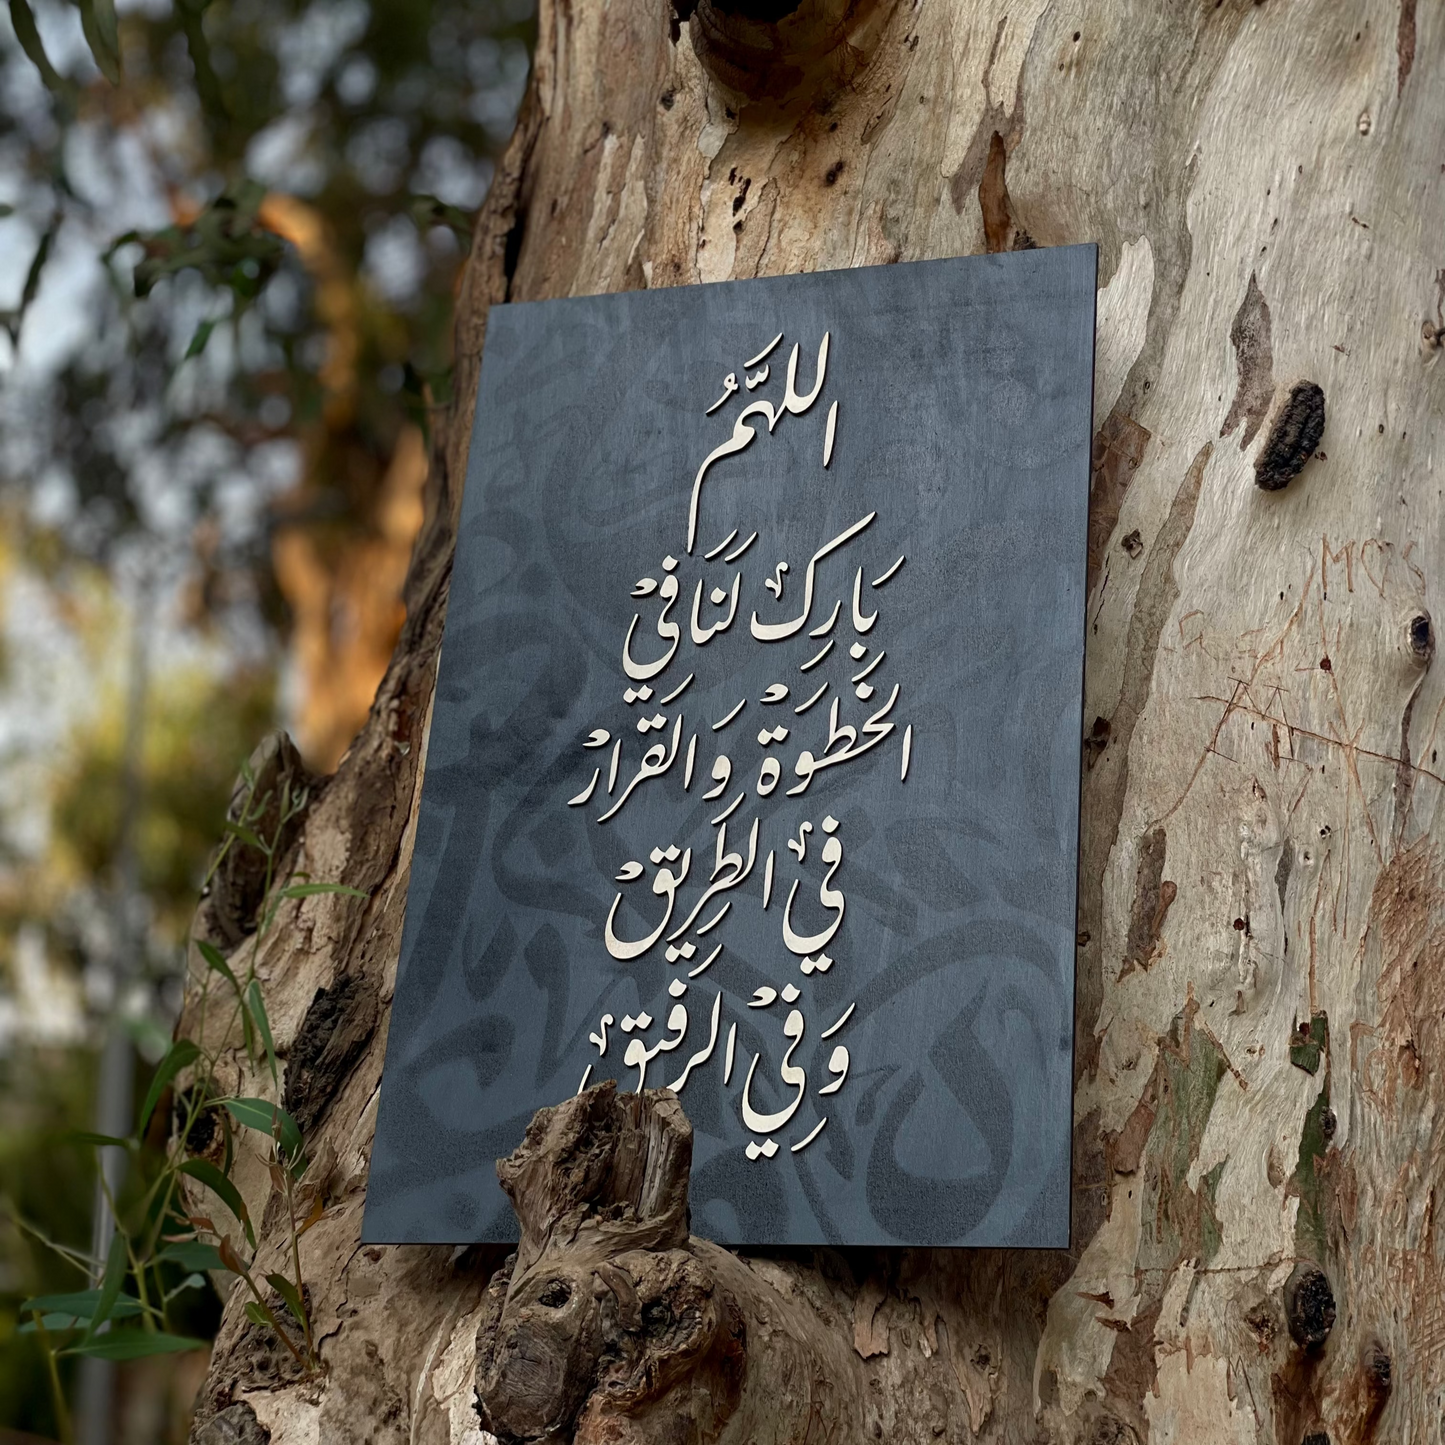 اللهَّمُ
بَارِكْ لَنَا فيْ
الخَطوَةْ وَالقَرارْ
فيْ الطَرِيقْ
وَفِيْ الرَفيقْ